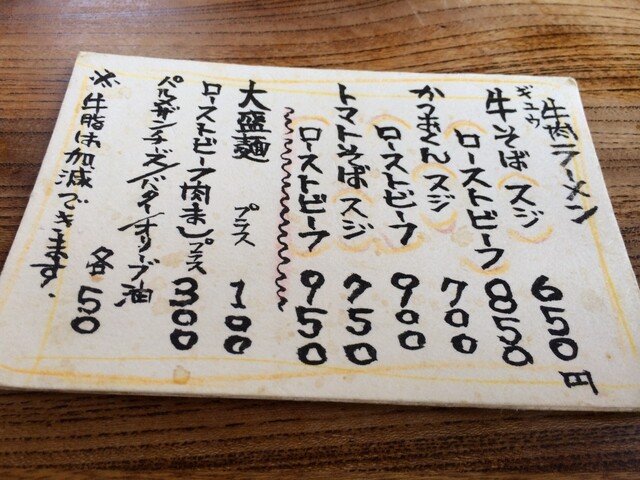 牛肉ラーメン
ギュウ
牛そば (スジ) 650円
(ローストビーフ) 850
かつまくん (スジ) 700
(ローストビーフ) 900
トマトそば (スジ) 750
(ローストビーフ) 950
大盛麺 プラス 100
ローストビーフ肉まし プラス 300
パルメザンチーズ/バター/オリーブ油 各50
※牛脂は加減できます.